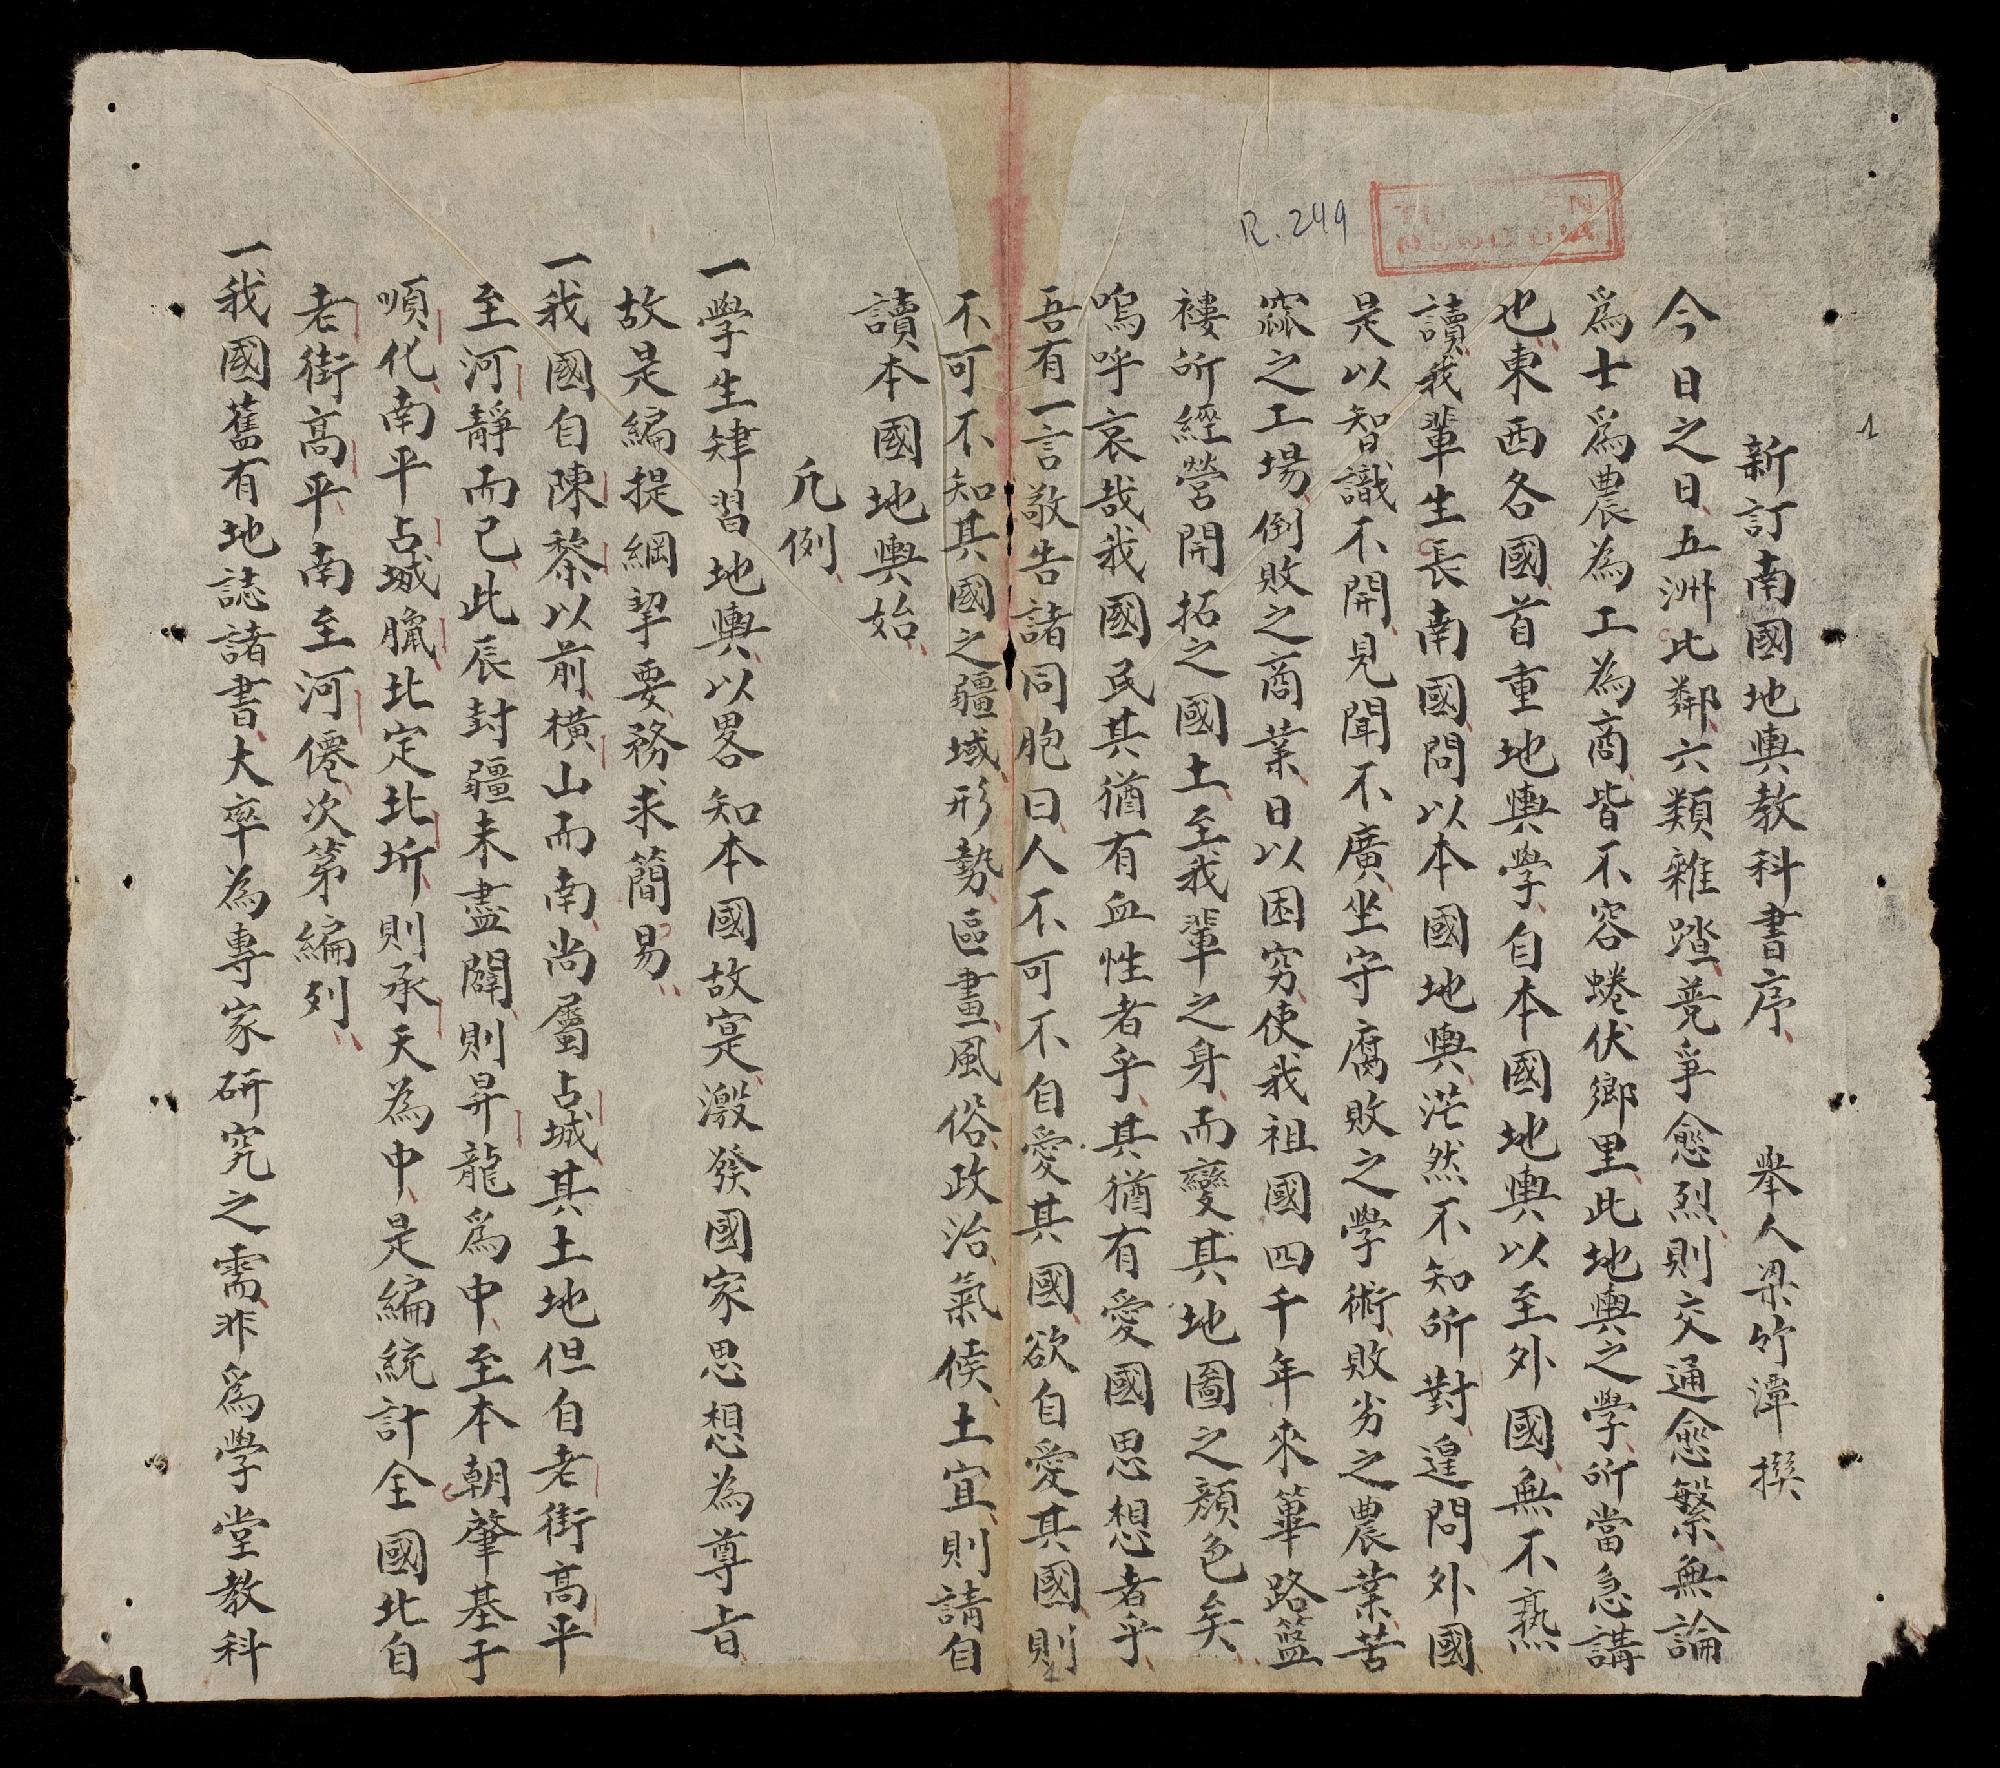 1
R.249
新訂南國地輿教科書序　舉人梁竹潭撰
今日之日五洲比鄰六類雜踏競爭愈烈則交通愈繁無論
爲士爲農為工為商皆不容蜷伏鄉里此地輿之學所當急講
也東西各國首重地輿學自本國地輿以至外國無不熟
讀我輩生長南國問以本國地輿茫然不知所對遑問外國
是以智識不開見聞不廣坐守腐敗之學術敗劣之農業苦
窳之工場倒敗之商業日以困窮使我祖國四千年來篳路籃
褸所經營開拓之國土至我輩之身而變其地圖之顏色矣
嗚呼哀哉我國民其猶有血性者乎其猶有愛國思想者乎
吾有一言敬告諸同胞曰人不可不自愛其國欲自愛其國則
不可不知其國之疆域形勢區畫風俗政治氣候土宜則請自
讀本國地輿始
凡例
一學生肄習地輿以畧知本國故寔激發國家思想為尊旨
故是編提綱挈要務求簡易
一我國自陳黎以前橫山而南尚屬占城其土地但自老街高平
至河靜而已此辰封疆未盡闢則昇龍爲中至本朝肇基于
順化南平占城臘北定北圻則承天為中是編統計全國北自
老街高平南至河僊次第編列
一我國舊有地誌諸書大率為專家研究之需非爲學堂教科